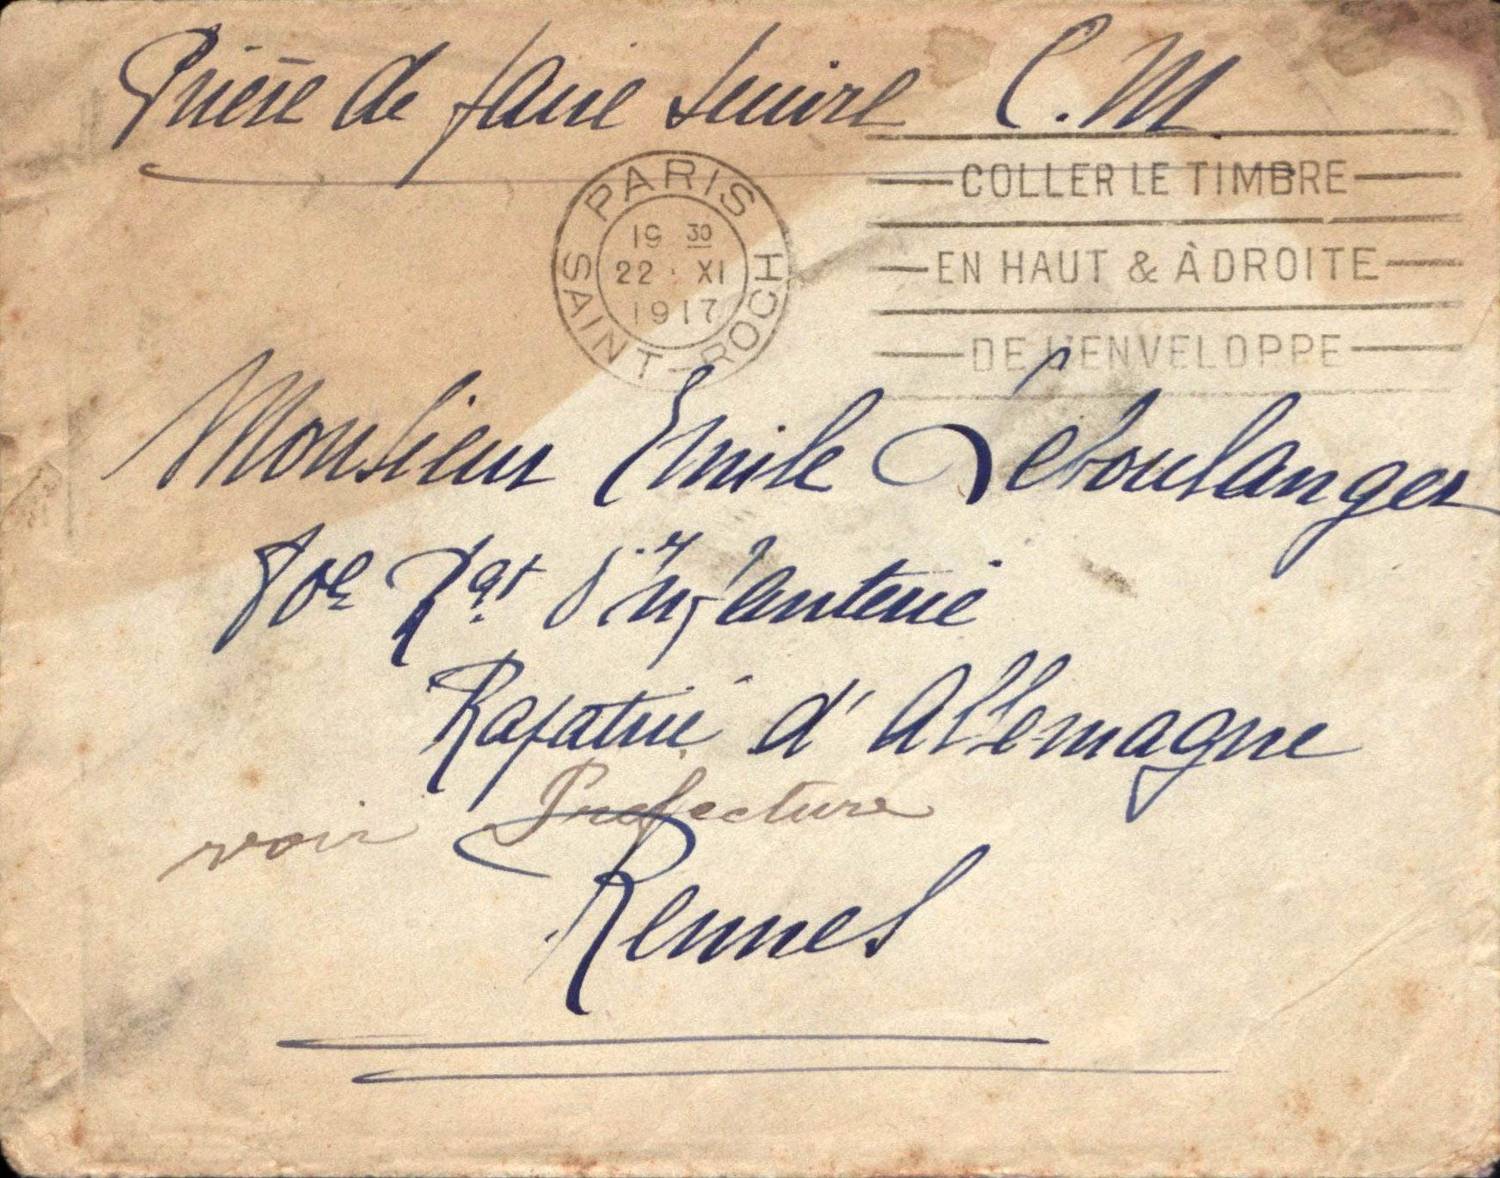 Prière de faire suivre C.M.
PARIS SAINT-ROCH
19 30
22 · XI
1917
COLLER LE TIMBRE
EN HAUT & À DROITE
DE L'ENVELOPPE
Monsieur Emile Léboulanger
80e Rgt d'infanterie
Rapatrié d'Allemagne
voir Prefecture
Rennes